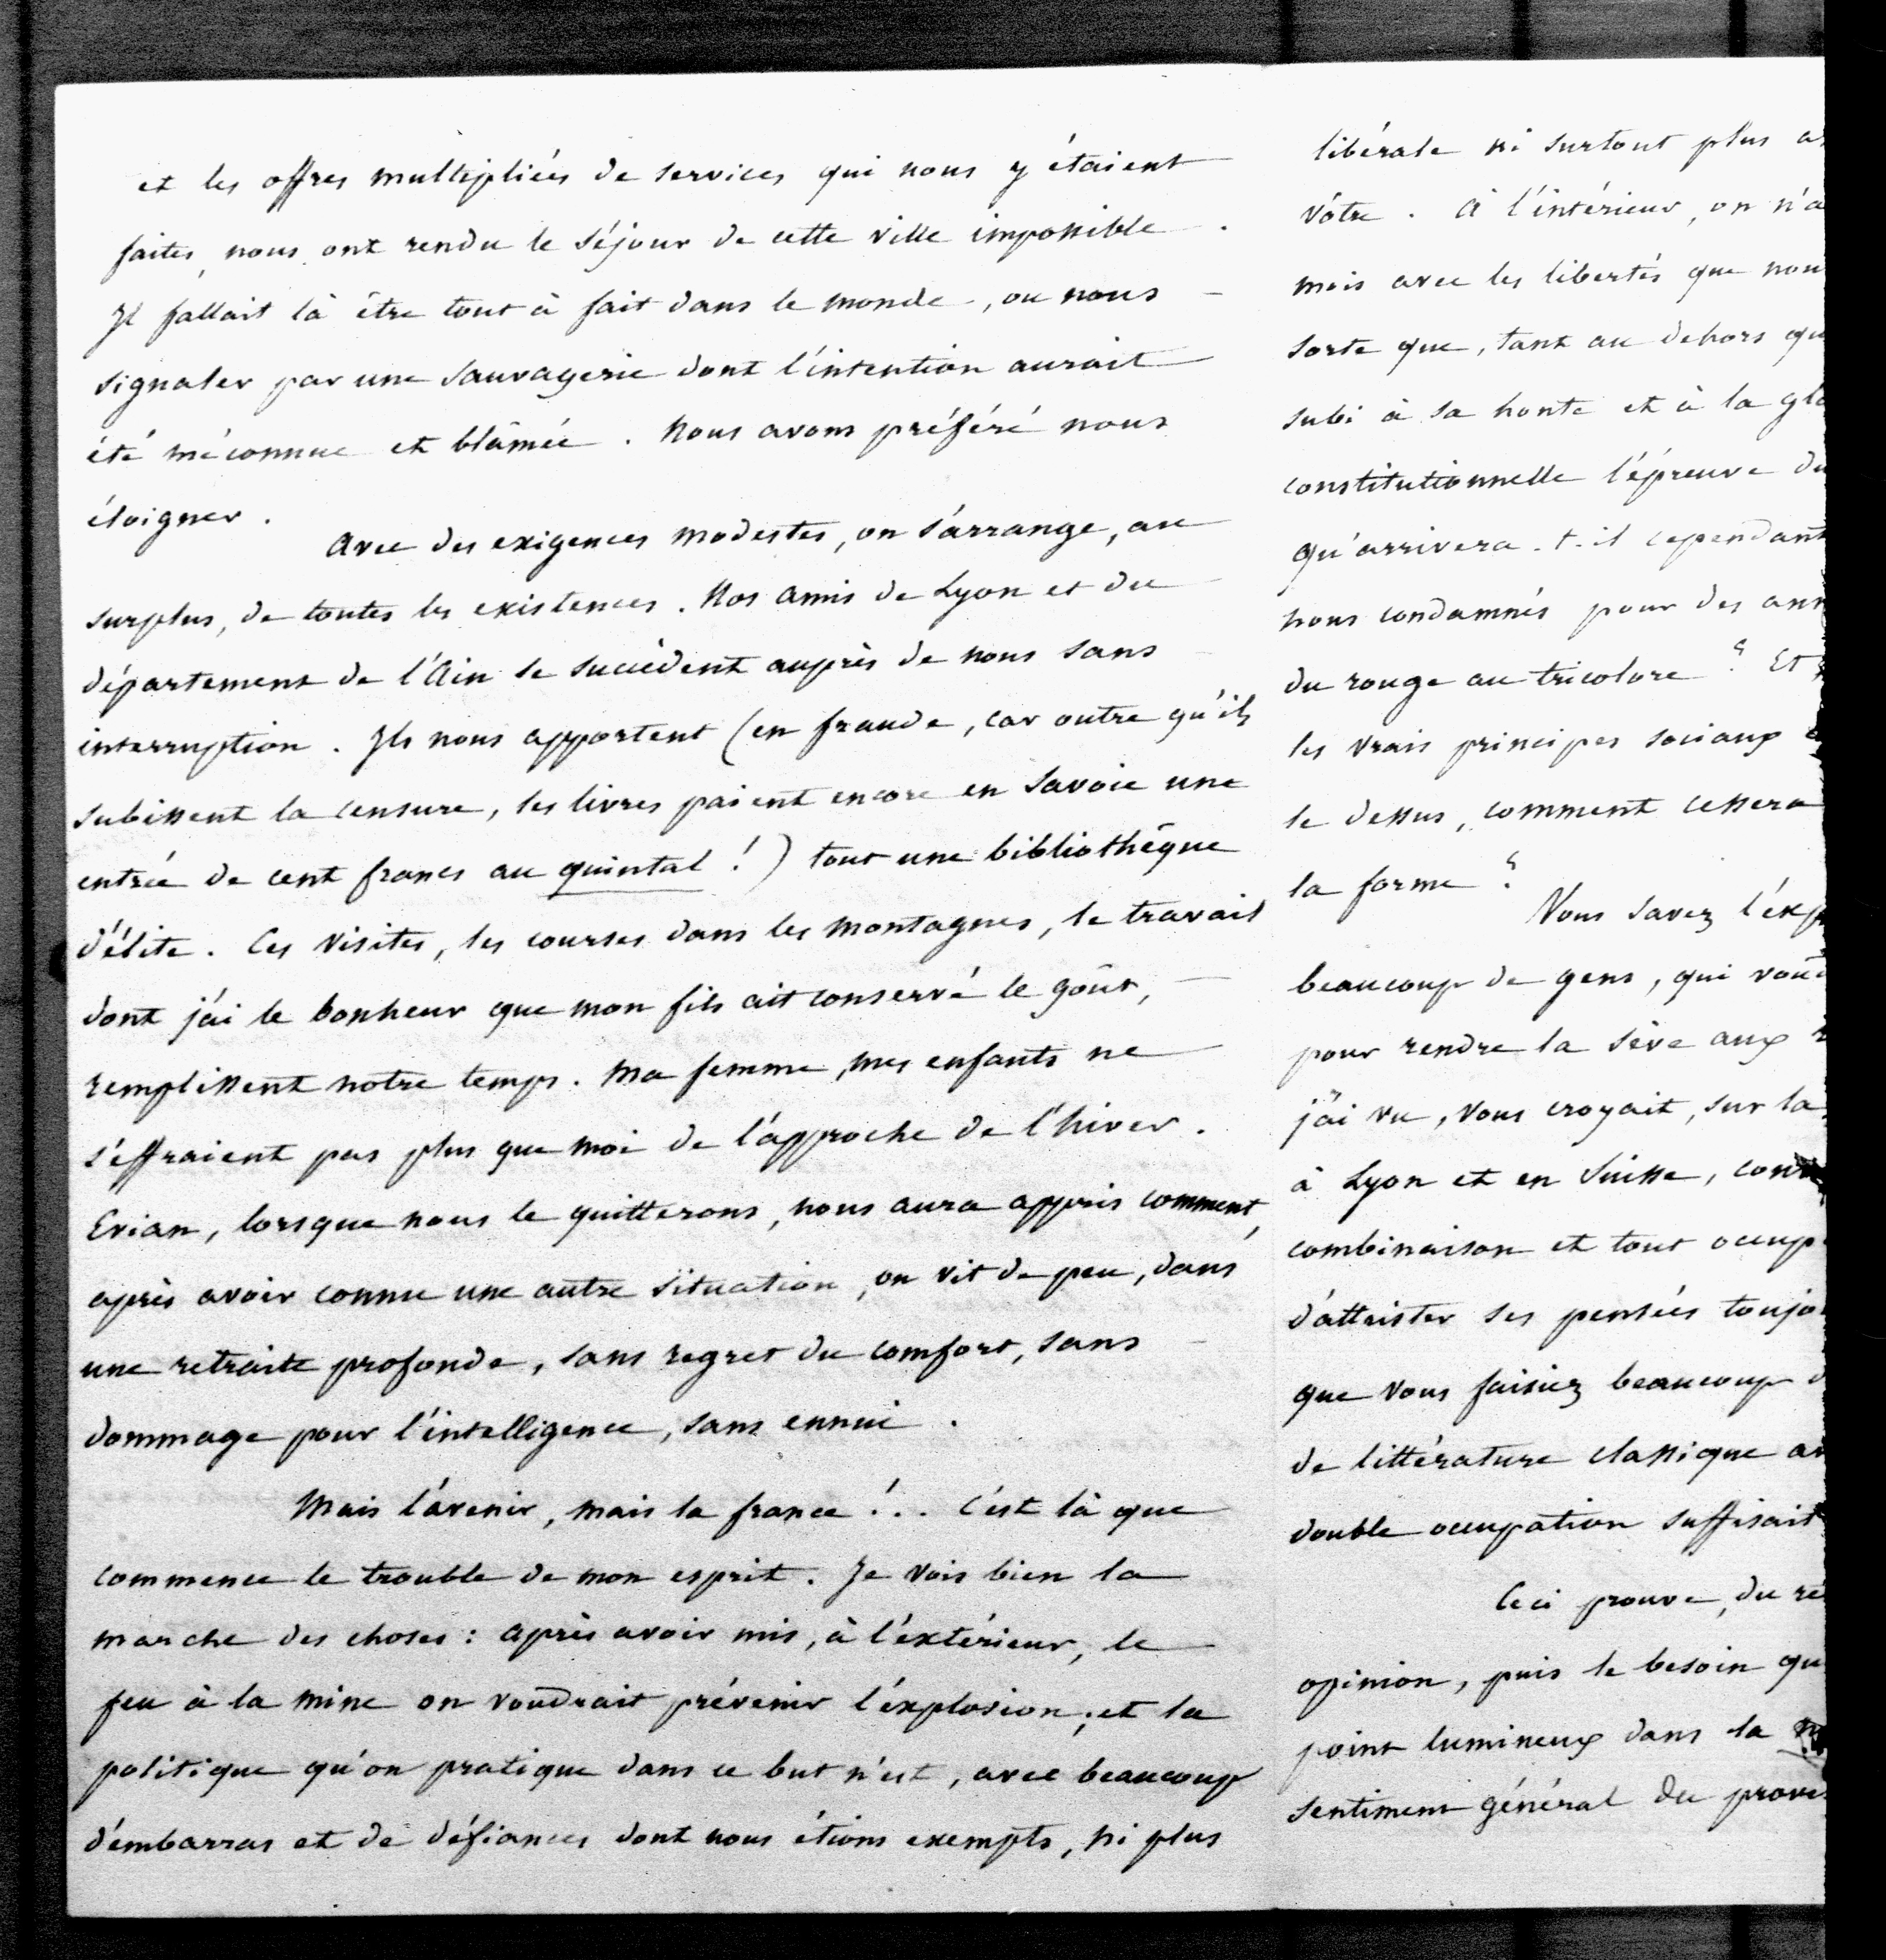 et les offres multipliées de services qui nous y étaient
faites, nous ont rendu le séjour de cette ville impossible.
Il fallait là être tout à fait dans le monde, ou nous
signaler par une sauvagerie dont l'intention aurait
été méconnue et blâmée. Nous avons préféré nous
éloigner.
Avec des exigences modestes, on s'arrange, au
surplus, de toutes les existences. Nos amis de Lyon et du
département de l'Ain se succèdent auprès de nous sans
interruption. Ils nous apportent (en fraude, car outre qu'ils
subissent la censure, les livres paient encore en Savoie une
entrée de cent francs au quintal !) tout une bibliothèque
d'élite. Ces visites, les courses dans les montagnes, le travail
dont j'ai le bonheur que mon fils ait conservé le goût,
remplissent notre temps. Ma femme, mes enfants ne
s'effraient pas plus que moi de l'approche de l'hiver.
Evian, lorsque nous le quitterons, nous aura appris comment,
après avoir connu une autre situation, on vit de peu, dans
une retraite profonde, sans regret du comfort, sans
dommage pour l'intelligence, sans ennui.
Mais l'avenir, mais la france !.. C'est là que
commence le trouble de mon esprit. Je vois bien la
marche des choses : après avoir mis, à l'extérieur, le
feu à la mine on voudrait prévenir l'explosion ; et la
politique qu'on pratique dans ce but n'est, avec beaucoup
d'embarras et de défiances dont nous étions exempts, ni plus
libérale ni surtout plus
vôtre. A l'intérieur, on n'a
mais avec les libertés que
sorte que, tant au dehors
subi à sa honte et à la
constitutionnelle l'épreuve
qu'arrivera-t-il cependant
nous condamnés pour des
du rouge au tricolore ? Et
les vrais principes sociaux
le dessus, comment cessera
la forme ?
Vous savez
beaucoup de gens, qui
pour rendre la sève aux
j'ai vu, vous croyait, sur la
à Lyon et en Suisse,
combinaison et tout
d'attrister ses pensées
que vous faisiez beaucoup
de littérature classique
double occupation suffisait
Ceci prouve, du
opinion, puis le besoin
point lumineux dans la
sentiment général du